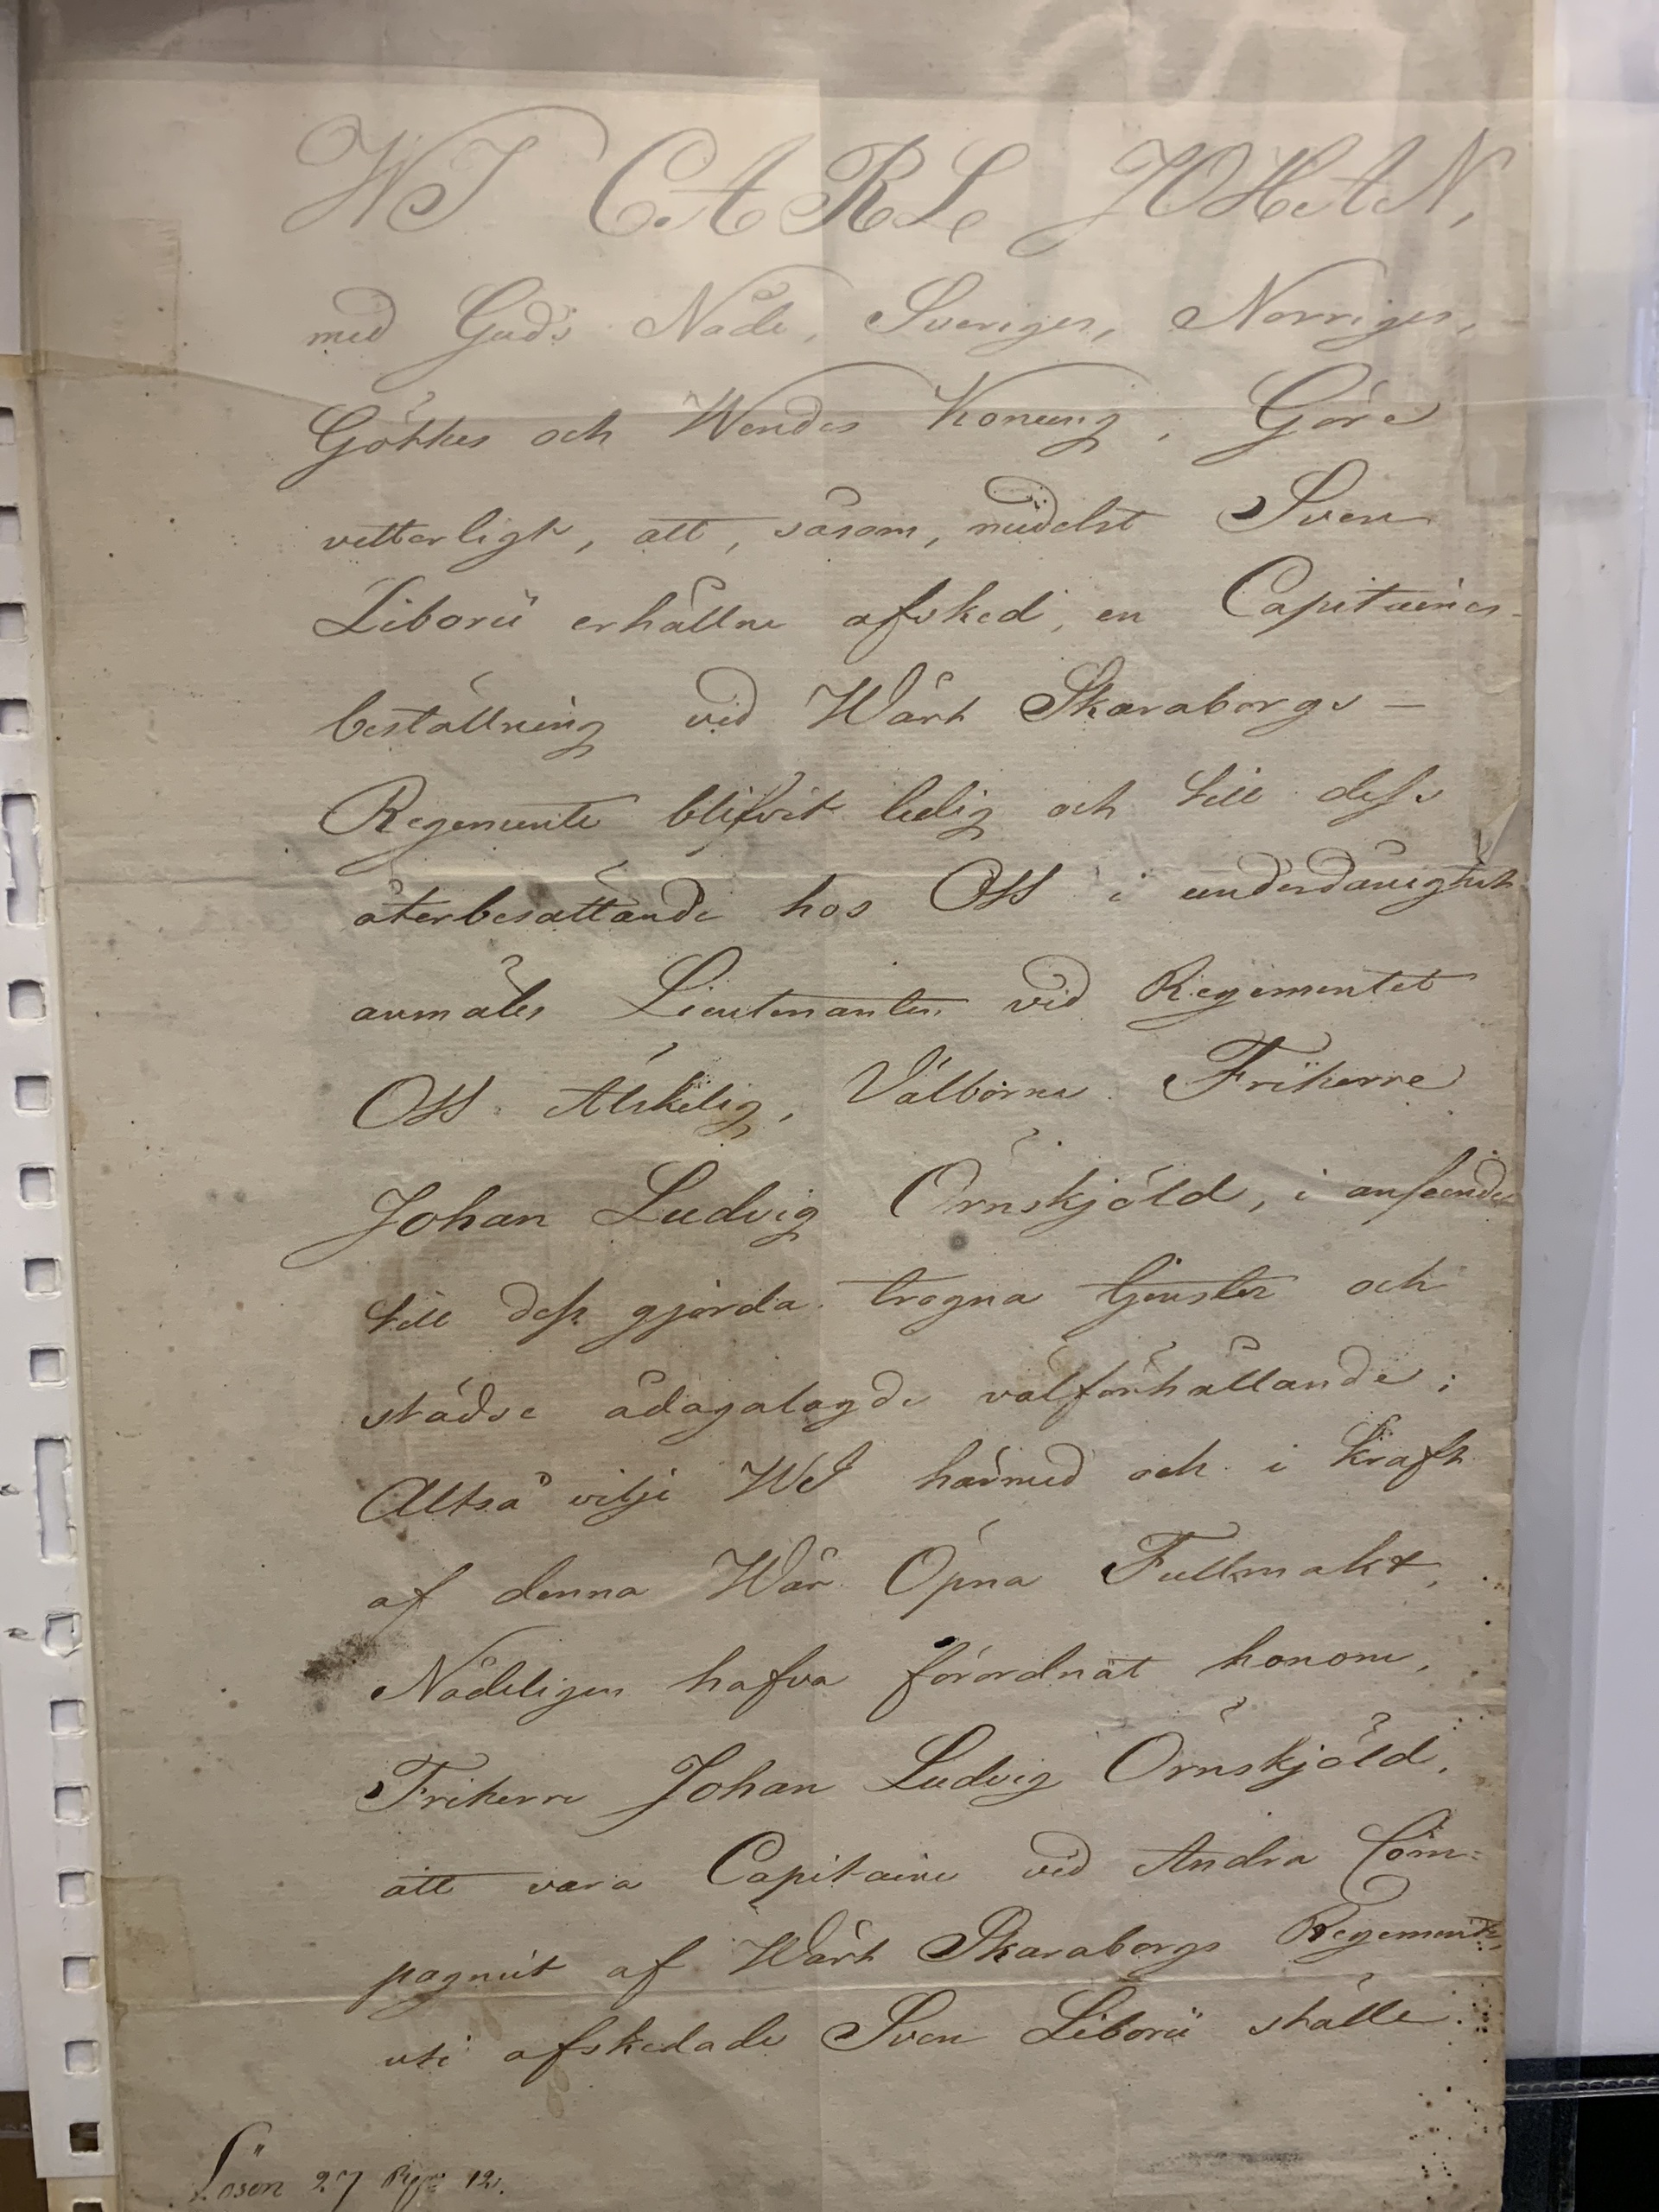 WI CARL JOHAN,
med Guds Nåde, Sveriges, Norriges,
Göthes och Wendes Konung, Göre
vetterligt, att, såsom, medelst Sven
Liborii erhållne afsked, en Capitaines-
beställning vid Wårt Skaraborgs –
Regemente blifvit ledig och till dess
återbesättande hos Oss i underdånighet
anmäles Lieutenanten vid Regementet
Oss Älskelig, Välborne Friherre
Johan Ludvig Örnskjöld, i anseende
till dess gjorda trogna tjenster och
städse ådagalagde välförhållande;
Altså vilje WI härmed och i kraft
af denna Wår Öpna Fullmakt,
Nådeligen hafva förordnat honom,
Friherre Johan Ludvig Örnskjöld,
att vara Capitaine vid Andra Com=
pagniet af Wårt Skaraborgs Regemente,
uti afskedade Sven Liborii ställe.
Lösen 27 12.